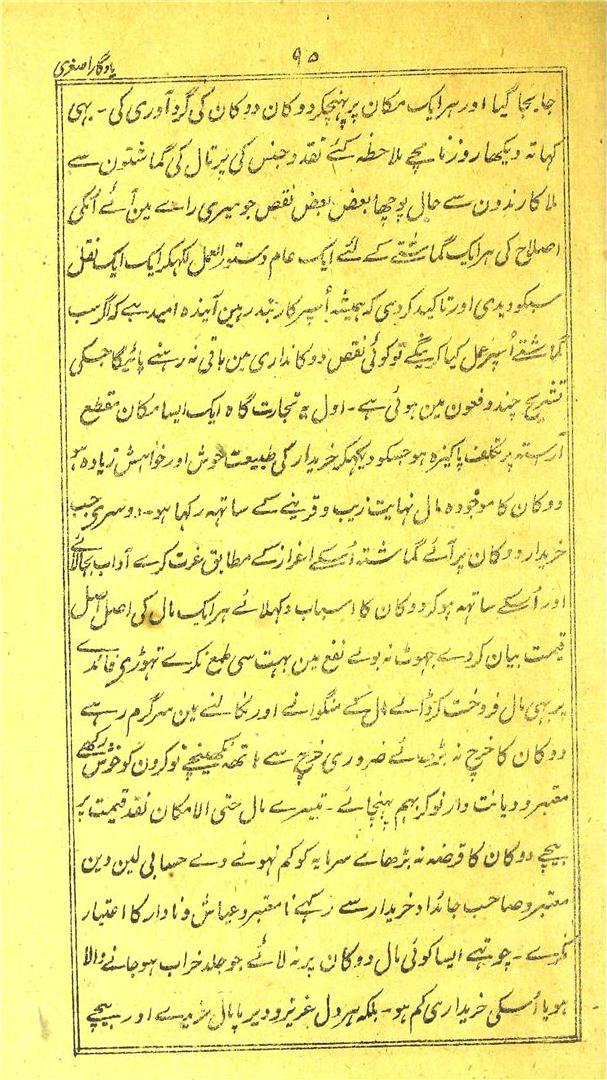 ۹۵
یادگار اصغری
جابجا گیا اور ہر ایک مکان پر پہنچکر دوکان دوکان کی گرد آوری کی ۔ بہی
کہاتہ دیکھا روزنامچے ملاحظہ کئے نقد و جنس کی پرتال کی گماشتون سے
ملا کارندون سے حال پوچھا بعض بعض نقص جو میری رائے مین آئے اُنکی
اصلاح کی ہر ایک گماشتے کے لئے ایک عام دستورالعمل لکہکر ایک ایک نقل
سبکو دیدی اور تاکید کردی کہ ہمیشہ اُسپر کاربند رہین آیندہ امید ہے کہ اگر سب
گماشتے اُسپر عمل کیا کرینگے تو کوئی نقص دوکانداری مین باقی نہ رہنے پائیگا جسکی
تشریح چند دفعون مین ہوئی ہے ۔ اول یہ تجارت گاہ ایک ایسا مکان مقطع
آراستہ پر تکلف پاکیزہ ہو جسکو دیکہکر خریدار کی طبیعت خوش اور خواہش زیادہ ہو
دوکان کا موجودہ مال نہایت زیب و قرینے کے ساتہہ رکہا ہو ۔ دوسری جب
خریدار دوکان پر آئے گماشتہ اُسکے اعزاز کے مطابق عزت کرے آداب بجا لائے
اور اُسکے ساتہہ ہوکر دوکان کا اسباب دکہلائے ہر ایک مال کی اصل اصل
قیمت بیان کردے جہوٹ نہ بولے نفع مین بہت سی طمع نکرے تہوڑی فائدے
پر بہی مال فروخت کر ڈالے مال کے منگوانے اور نکالنے مین سرگرم رہے
دوکان کا خرچ نہ بڑھائے ضروری خرچ سے ہاتھ نہ کھینچے نوکرون کو خوش رکھے
معتبر و دیانت دار نوکر بہم پہنچائے ۔ تیسرے مال حتی الامکان نقد قیمت پر
بیچے دوکان کا قرضہ نہ بڑھاے سرمایہ کو کم نہونے دے حسابی لین دین
معتبر و صاحب جائداد خریدار سے رکہے نامعتبر و عیاش و نادار کا اعتبار
نکرے ۔ چوتہے ایسا کوئی مال دوکان پر نہ لائے جو جلد خراب ہو جانے والا
ہو یا اُسکی خریداری کم ہو ۔ بلکہ ہر دل عزیز و دیرپا مال خریدے اور بیچے